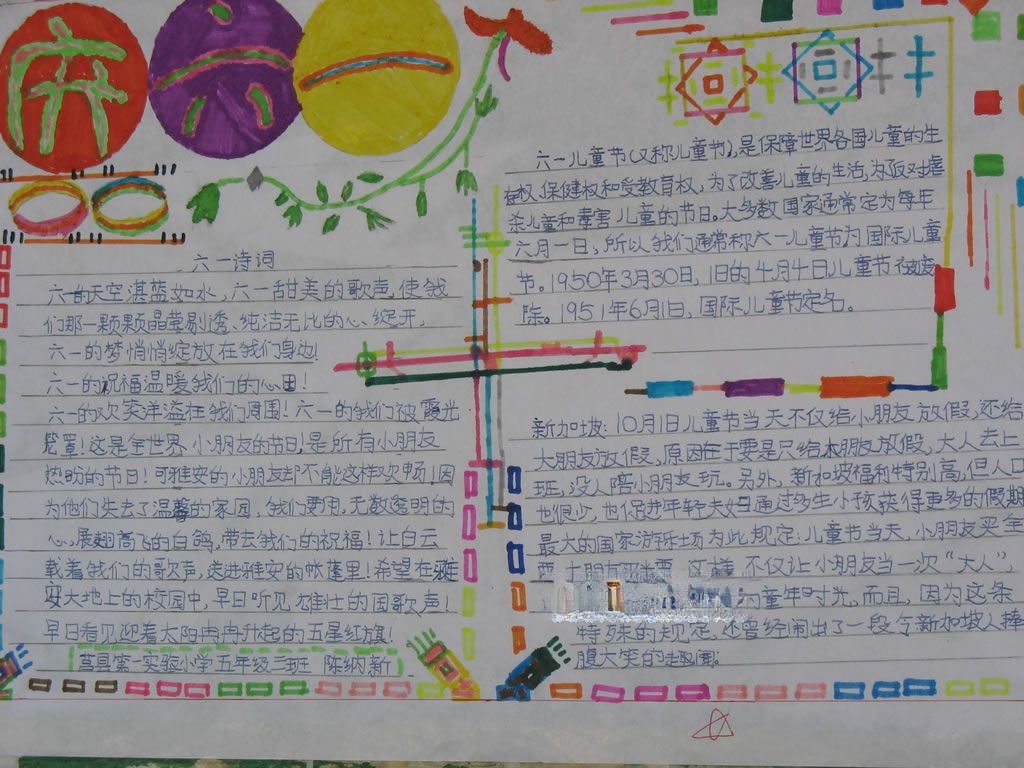 庆六一
六一诗词
六一的天空湛蓝如水，六一甜美的歌声，使我
们那一颗颗晶莹剔透、纯洁无比的心绽开，
六一的梦悄悄绽放在我们身边！
六一的祝福温暖我们的心田！
六一的欢笑洋溢在我们周围！六一的我们被霞光
笼罩！这是全世界小朋友的节日！是所有小朋友
热盼的节日！可雅安的小朋友却不能这样欢畅！因
为他们失去了温馨的家园，我们要用，无数透明的
心，展翅高飞的白鸽，带去我们的祝福！让白云
载着我们的歌声，走进雅安的帐蓬里！希望在雅
安大地上的校园中，早日听见雄壮的国歌声！
早日看见迎着太阳冉冉升起的五星红旗！
莒县第一实验小学五年级三班 陈纳新
六一儿童节（又称儿童节），是保障世界各国儿童的生
存权、保健权和受教育权，为了改善儿童的生活，为反对虐
杀儿童和毒害儿童的节日。大多数国家通常定为每年
六月一日，所以我们通常称六一儿童节为国际儿童
节。1950年3月30日，旧的4月4日儿童节被废
除。1951年6月1日，国际儿童节定名。
新加坡：10月1日儿童节当天不仅给小朋友放假，还给
大朋友放假，原因在于要是只给小朋友放假，大人去上
班，没人陪小朋友玩。另外，新加坡福利特别高，但人口
也很少，也促进年轻夫妇通过多生小孩获得更多的假期
最大的国家游乐场为此规定：儿童节当天，小朋友买全
票，大朋友买半票，这样不仅让小朋友当一次“大人”，
童年时光，而且，因为这条
特殊的规定，还曾经闹出了一段令新加坡人捧
腹大笑的趣闻。